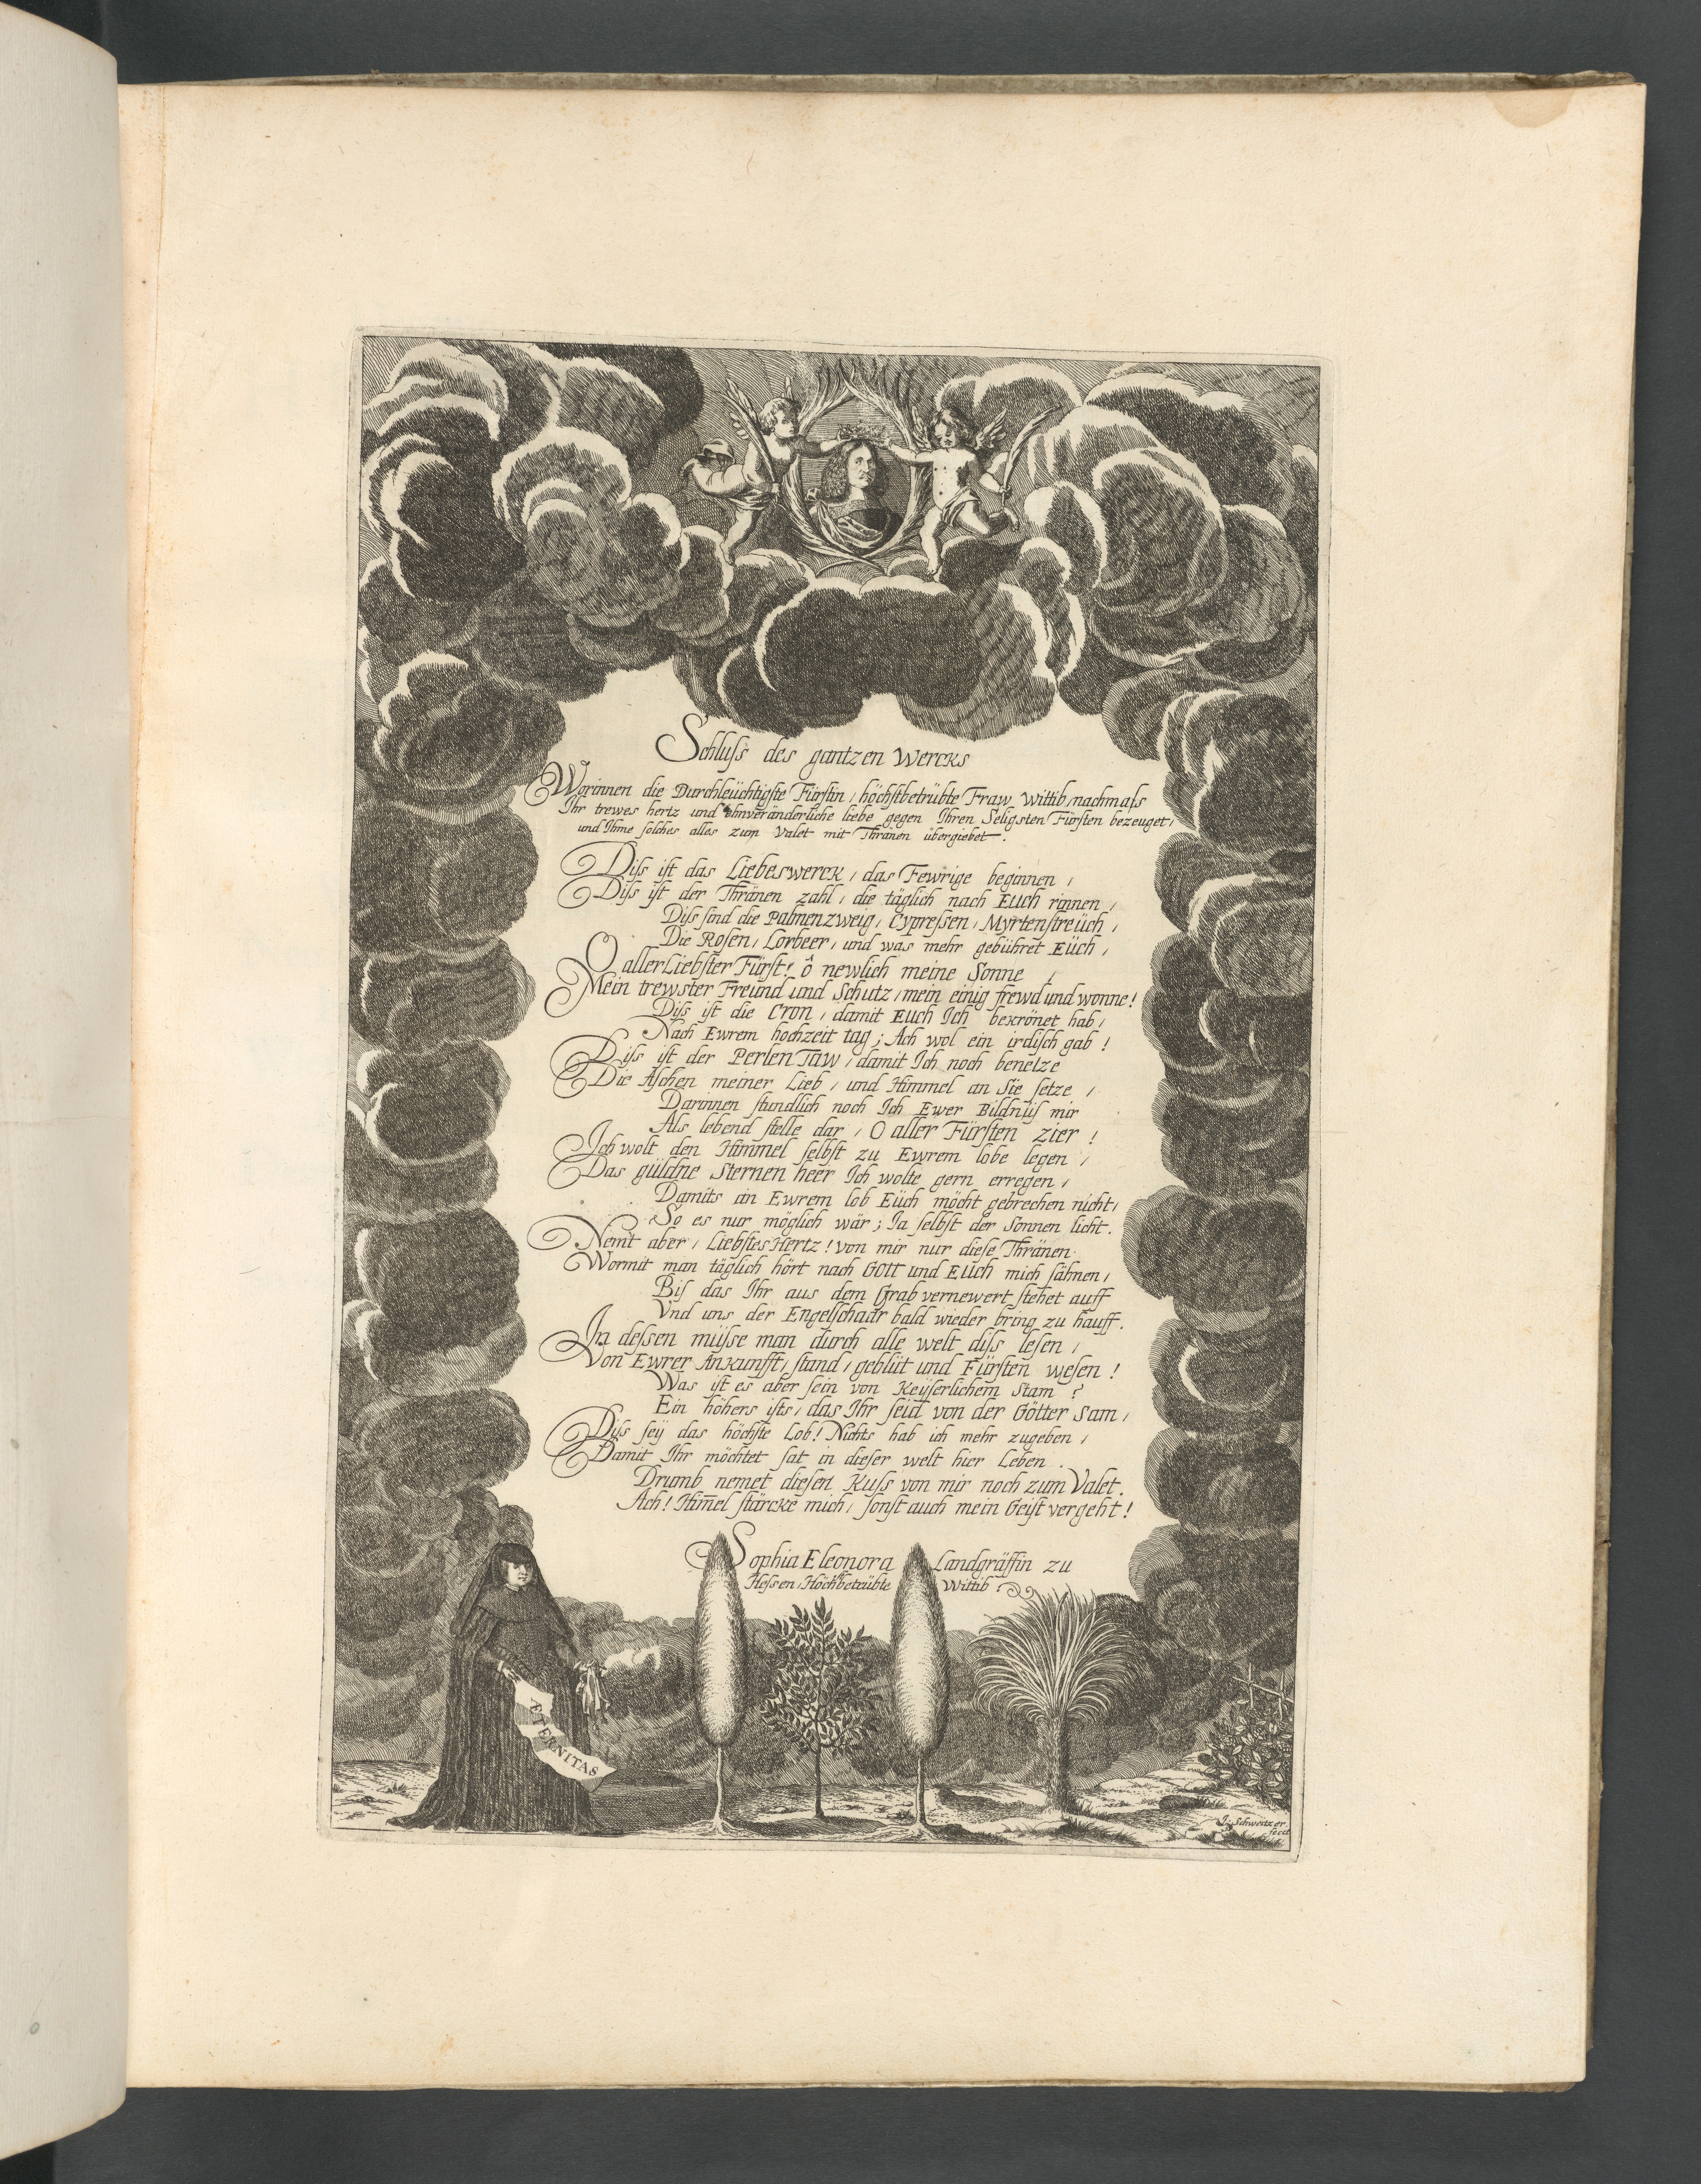 Schluſs des gantzen Wercks
Worinnen die Durchleüchtigſte Fürſtin / höchſtbetrübte Fraw Wittib / nachmals
Ihr trewes hertz und ohnveränderliche liebe gegen Ihren Seligsten Fürſten bezeuget /
und Ihme ſolches alles zum Valet mit Thränen übergiebet.
Diſs iſt das Liebeswerck / das Fewrige beginnen /
Diſs iſt der Thränen zahl / die täglich nach Euch rinnen /
Diſs ſind die Palmenzweig / Cypreſsen / Myrtenſtreüch /
Die Roſen / Lorbeer / und was mehr gebühret Eüch /
O allerLiebſter Fürſt! ô newlich meine Sonne /
Mein trewster Freund und Schutz / mein einig frewd und wonne!
Diſs iſt die Cron / damit Euch Ich bekrönet hab /
Nach Ewrem hochzeit tag; Ach wol ein irdiſch gab!
Diſs iſt der Perlen Taw / damit Ich noch benetze
Die Aſchen meiner Lieb / und Himmel an Sie ſetze /
Darinnen ſtundlich noch Ich Ewer Bildnüſ mir
Als lebend ſtelle dar / O aller Fürſten zier!
Ich wolt den Himmel ſelbſt zu Ewrem lobe legen /
Das güldne Sternen heer Ich wolte gern erregen /
Damits an Ewrem lob Eüch möcht gebrechen nicht /
So es nur möglich wär; Ja ſelbſt der Sonnen licht.
Nemt aber / Liebſtes Hertz! von mir nur dieſe Thränen
Wormit man täglich hört nach GOTT und EUCH mich ſähnen /
Biſ das Ihr aus dem Grab vernewert ſtehet auff
Vnd uns der Engelſchaar bald wieder bring zu hauff.
In deſsen müſse man durch alle welt diſs leſen /
Von Ewrer Ankunfft / ſtand / geblüt und Fürſten weſen!
Was iſt es aber ſein von Keÿſerlichem Stam?
Ein höhers iſts / das Ihr ſeid von der Götter Sam /
Diſs ſeÿ das höchſte Lob! Nichts hab ich mehr zugeben /
Damit Ihr möchtet ſat in dieſer welt hier Leben.
Drumb nemet dieſen Kuſs von mir noch zum Valet.
Ach! Him̄el ſtärcke mich / ſonſt auch mein Geiſt vergeht!
Sophia Eleonora Landgräffin zu
Heſsen / Höchſtbetrübte Wittib
ÆTERNITAS
J. Schweitzer
fecit